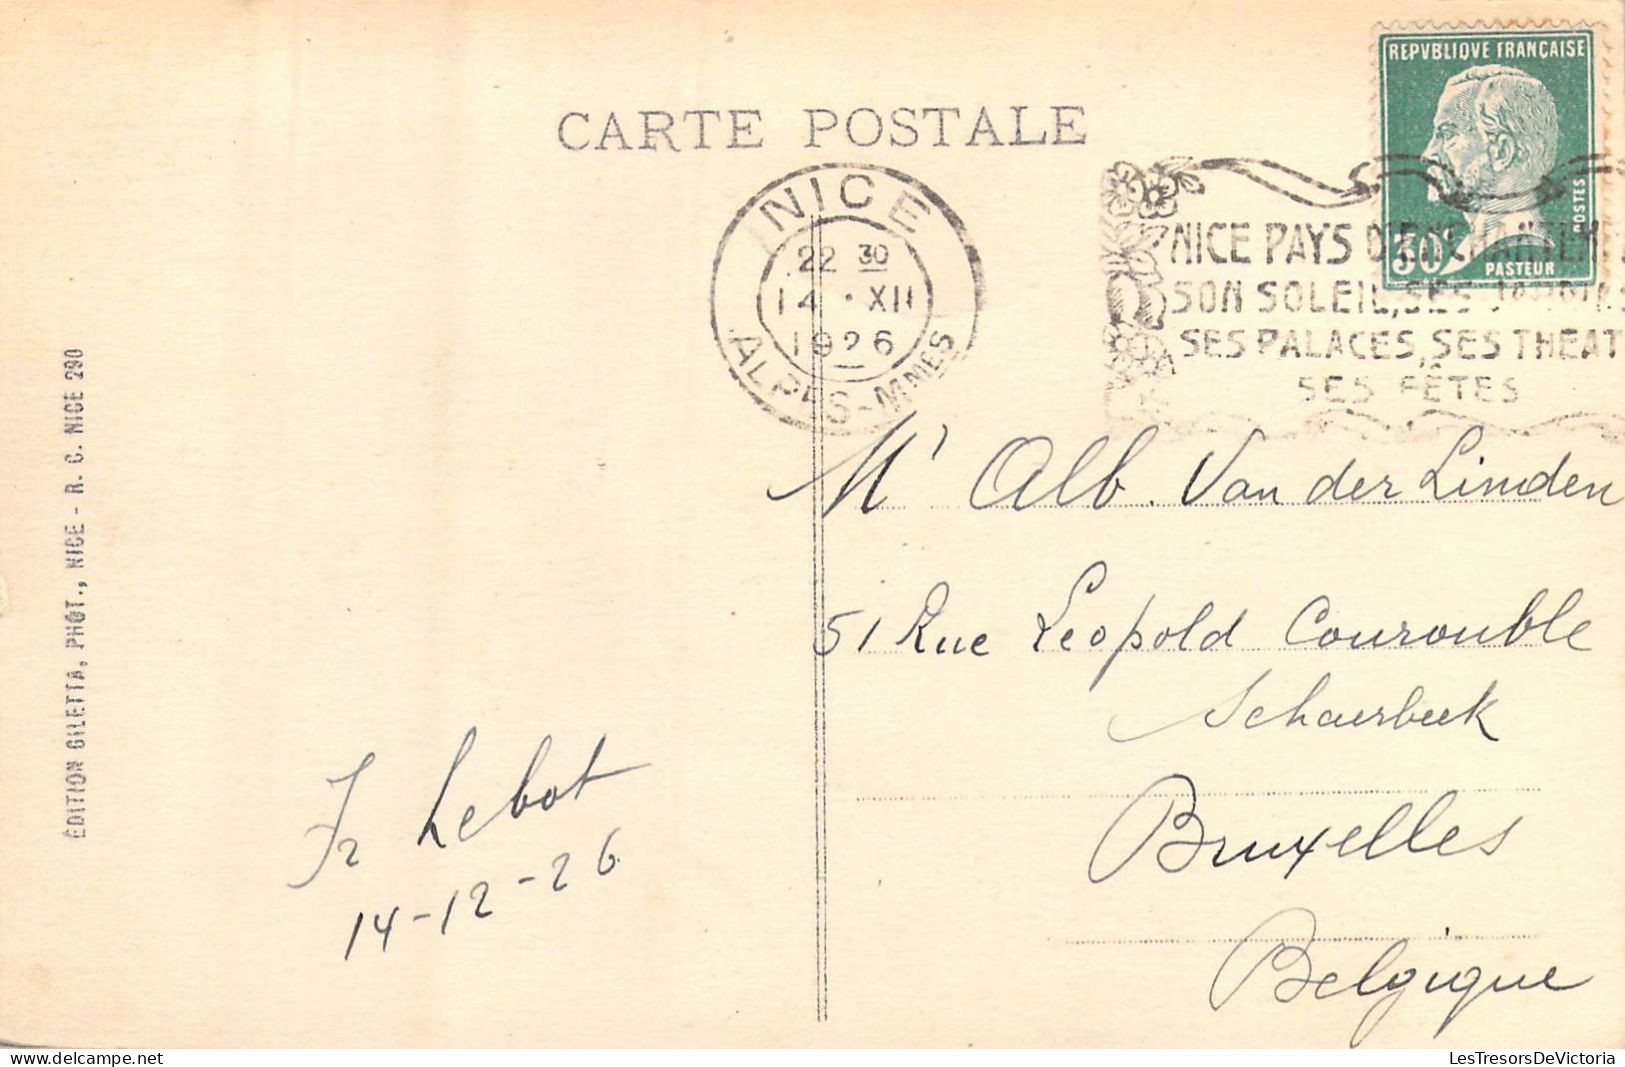 REPVBLIQVE FRANÇAISE
POSTES
30c
PASTEUR
CARTE POSTALE
NICE
22 30
14 · XII
1926
ALPES-MMES
NICE PAYS D'ENCHANTEM
SON SOLEIL, SES
SES PALACES, SES THEAT
SES FÊTES
ÉDITION GILETTA, PHOT., NICE - R. C. NICE 290
Mr Alb. Van der Linden
51 Rue Leopold Courouble
Schaerbeek
Bruxelles
Belgique
Fr Lebot
14-12-26
LesTresorsDeVictoria